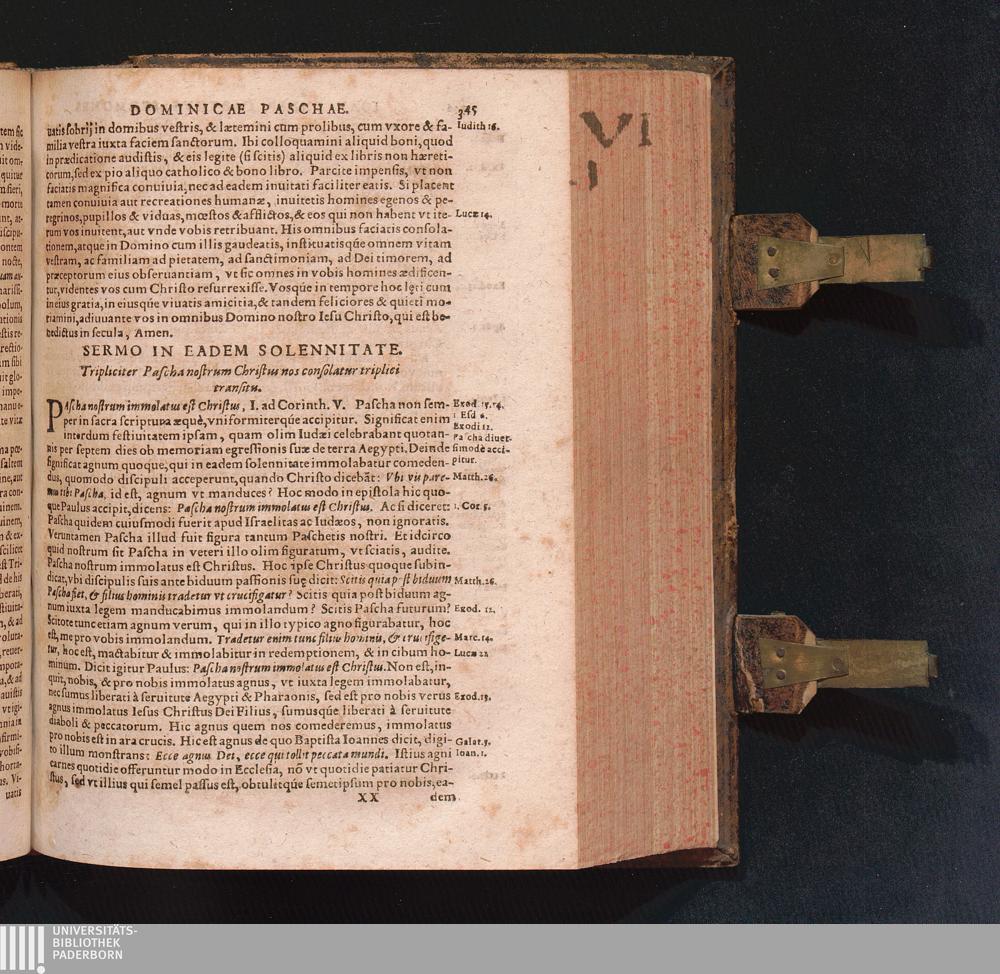 DOMINICAE PASCHAE. 345
uatis sobrij in domibus vestris, & lætemini cum prolibus, cum vxore & fa- Iudith 16.
milia vestra iuxta faciem sanctorum. Ibi colloquamini aliquid boni, quod
in prædicatione audistis, & eis legite (si scitis) aliquid ex libris non hæreti-
corum, sed ex pio aliquo catholico & bono libro. Parcite impensis, vt non
faciatis magnifica conuiuia, nec ad eadem inuitati faciliter eatis. Si placent
tamen conuiuia aut recreationes humanæ, inuitetis homines egenos & pe-
regrinos, pupillos & viduas, mœstos & afflictos, & eos qui non habent vt ite- Lucæ 14.
rum vos inuitent, aut vnde vobis retribuant. His omnibus faciatis consola-
tionem, atque in Domino cum illis gaudeatis, instituatisq́ue omnem vitam
vestram, ac familiam ad pietatem, ad sanctimoniam, ad Dei timorem, ad
præceptorum eius obseruantiam, vt sic omnes in vobis homines ædificen-
tur, videntes vos cum Christo resurrexisse. Vosq́ue in tempore hoc lęti cum
in eius gratia, in eiusq́ue viuatis amicitia, & tandem feliciores & quieti mo-
riamini, adiuuante vos in omnibus Domino nostro Iesu Christo, qui est be-
nedictus in secula, Amen.
SERMO IN EADEM SOLENNITATE.
Tripliciter Pascha nostrum Christus nos consolatur triplici
transitu.
Pascha nostrum immolatus est Christus, I. ad Corinth. V. Pascha non sem- Exod. 14.
per in sacra scriptura æquè, vniformiterq́ue accipitur. Significat enim 1 Esd 6. Exodi 12.
interdum festiuitatem ipsam, quam olim Iudæi celebrabant quotan- Pascha diuer-
nis per septem dies ob memoriam egressionis suæ de terra Aegypti. Deinde simodè acci-
significat agnum quoque, qui in eadem solennitate immolabatur comeden- pitur.
dus, quomodo discipuli acceperunt, quando Christo dicebāt: Vbi vis pare- Matth. 26.
mus tibi Pascha, id est, agnum vt manduces? Hoc modo in epistola hic quo-
que Paulus accipit, dicens: Pascha nostrum immolatus est Christus. Ac si diceret: 1. Cor. 5.
Pascha quidem cuiusmodi fuerit apud Israelitas ac Iudæos, non ignoratis.
Veruntamen Pascha illud fuit figura tantum Paschetis nostri. Et idcirco
quid nostrum sit Pascha in veteri illo olim figuratum, vt sciatis, audite.
Pascha nostrum immolatus est Christus. Hoc ipse Christus quoque subin-
dicat, vbi discipulis suis ante biduum passionis suę dicit: Scitis quia post biduum Matth. 26.
Pascha fiet, & filius hominis tradetur vt crucifigatur? Scitis quia post biduum ag-
num iuxta legem manducabimus immolandum? Scitis Pascha futurum? Exod. 12.
Scitote tunc etiam agnum verum, qui in illo typico agno figurabatur, hoc
est, me pro vobis immolandum. Tradetur enim tunc filius hominis, & crucifige- Marc. 14.
tur, hoc est, mactabitur & immolabitur in redemptionem, & in cibum ho- Lucæ 22
minum. Dicit igitur Paulus: Pascha nostrum immolatus est Christus. Non est, in-
quit, nobis, & pro nobis immolatus agnus, vt iuxta legem immolabatur,
nec sumus liberati à seruitute Aegypti & Pharaonis, sed est pro nobis verus Exod. 13.
agnus immolatus Iesus Christus Dei Filius, sumusq́ue liberati à seruitute
diaboli & peccatorum. Hic agnus quem nos comederemus, immolatus
pro nobis est in ara crucis. Hic est agnus de quo Baptista Ioannes dicit, digi- Galat. 3.
to illum monstrans: Ecce agnus Dei, ecce qui tollit peccata mundi. Istius agni Ioan. 1.
carnes quotidie offeruntur modo in Ecclesia, nō vt quotidie patiatur Chri-
stus, sed vt illius qui semel passus est, obtulitq́ue semetipsum pro nobis, ea-
XX dem
VI
UNIVERSITÄTS-
BIBLIOTHEK
PADERBORN